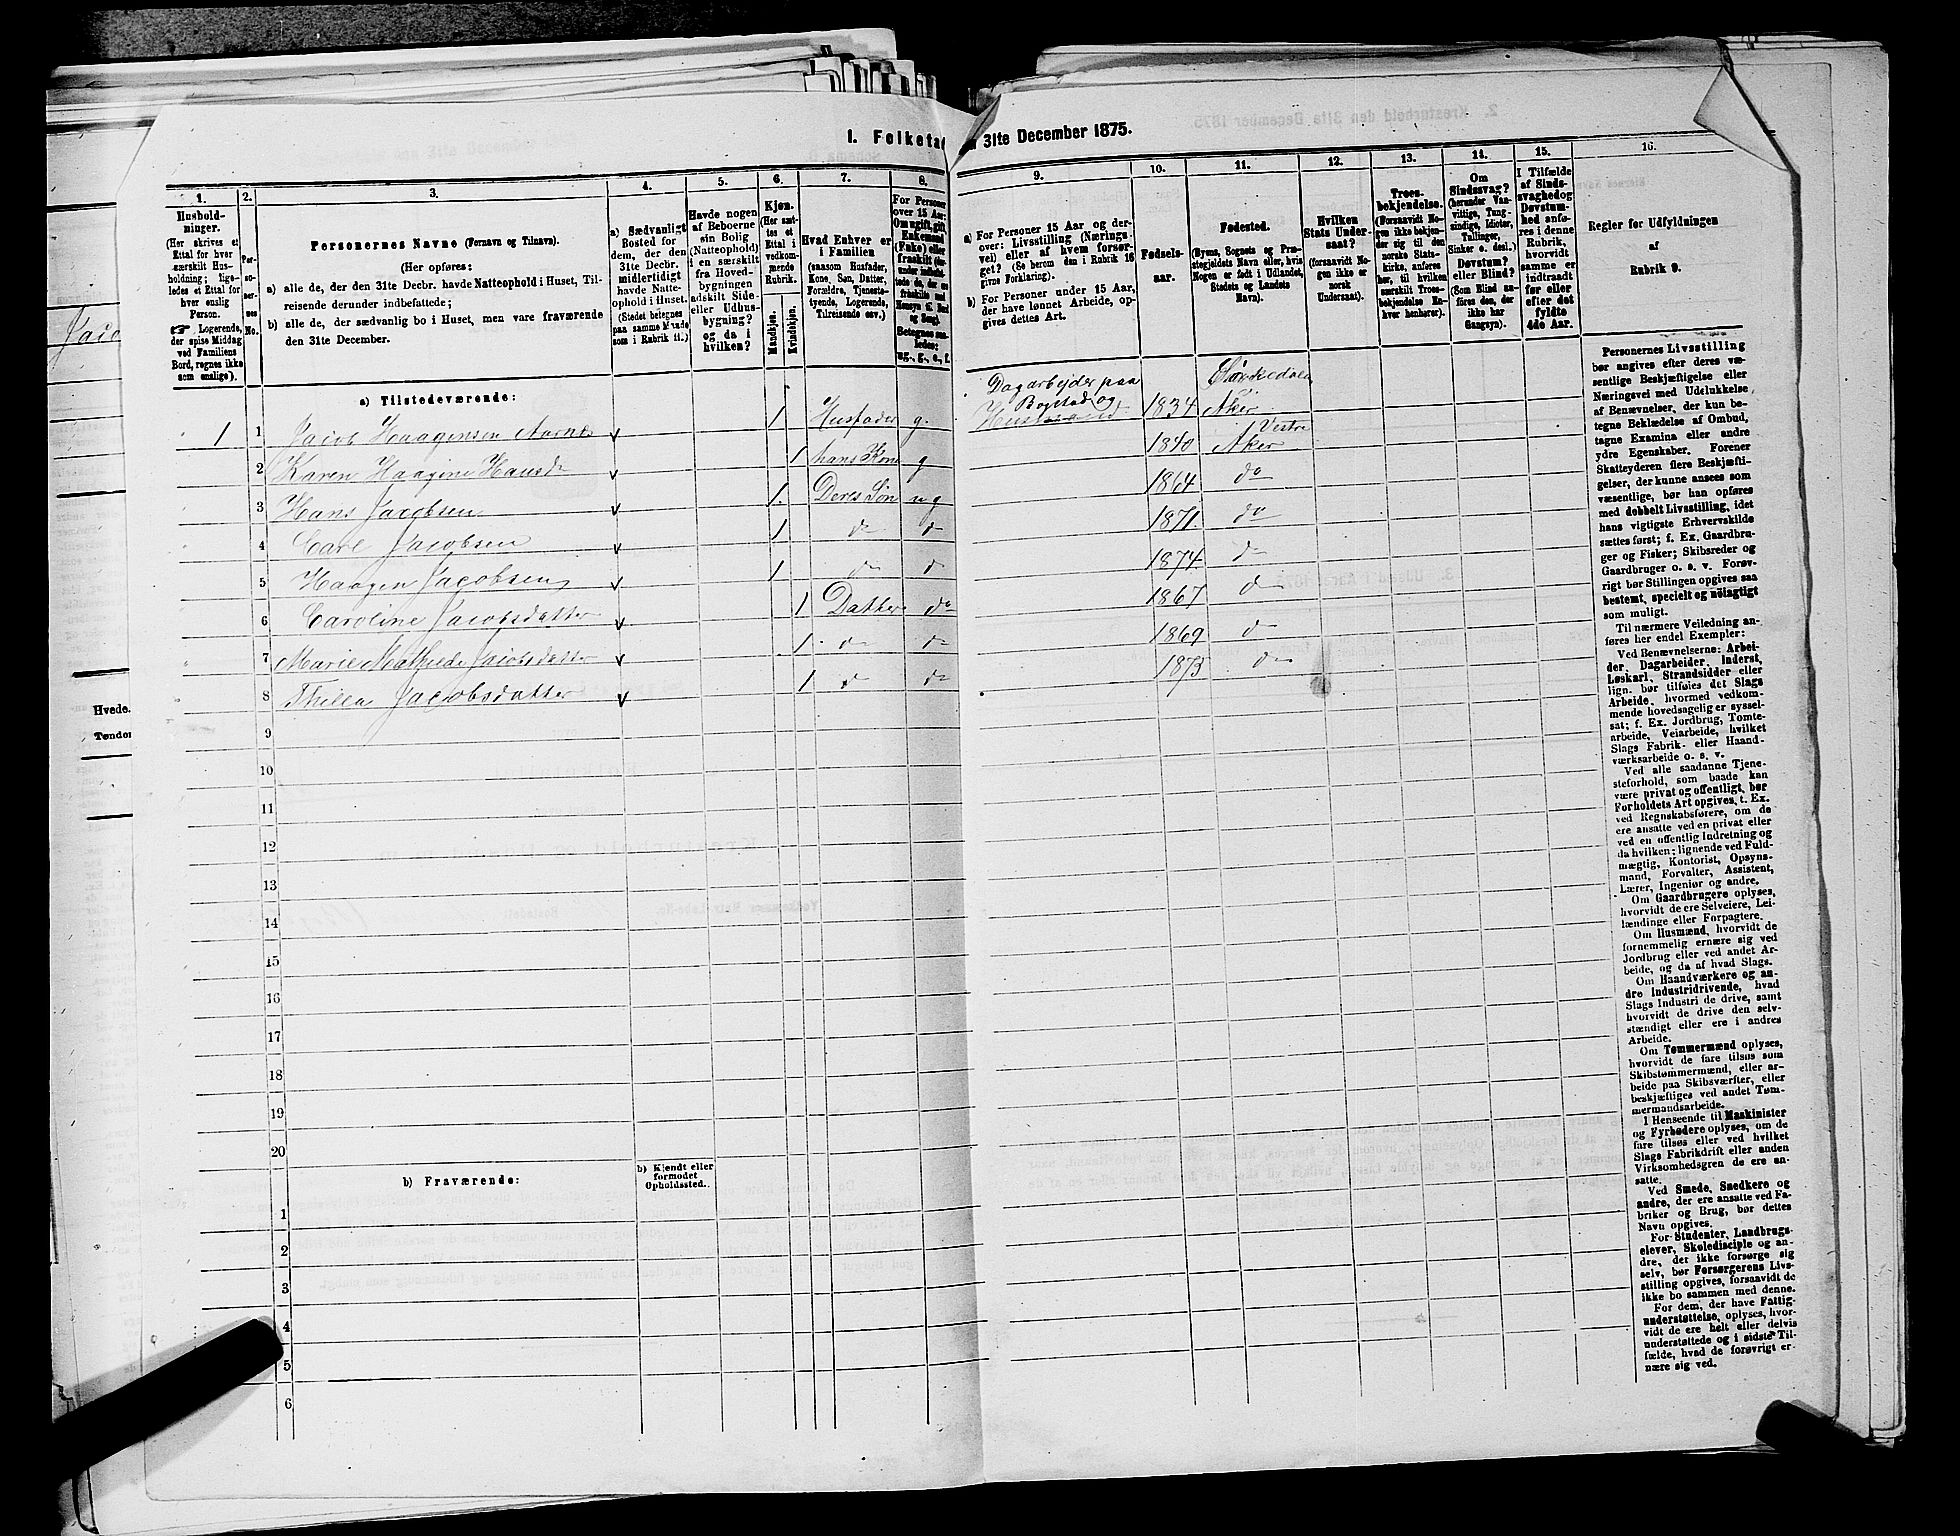 I. Folketæ
n 31te December 1875.
1.
2.
3.
4.
5.
6.
7.
8.
9.
10.
11.
12.
13.
14.
15.
16.
Hushold-
ninger.
(Her skrives et
Ettal for hver
særskilt Hus-
holdning; lige-
ledes et Ettal for
hver enslig
Person.
Logerende,
der spise Middag
ved Familiens
Bord, regnes ikke
som enslige).
Per-
so-
ner-
nes
No.
Personernes Navne (Fornavn og Tilnavn).
(Her opføres:
a) alle de, der den 31te Decbr. havde Natteophold i Huset, Til-
reisende derunder indbefattede;
b) alle de, der sædvanlig bo i Huset, men vare fraværende
den 31te December.
a) Sædvanligt
Bosted for
dem, der den
31te Decbr.
midlertidigt
havde Natte-
ophold i Huset.
(Stedet betegnes
paa samme Maade
som i Rubrik 11.)
Havde nogen
af Beboerne
sin Bolig
(Natteophold)
i en særskilt
fra Hoved-
bygningen
adskilt Side-
eller Udhus-
bygning?
og da i
hvilken?
Kjøn.
(Her sæt-
tes et
Ettal i
vedkom-
mende
Rubrik.
Mandkjøn.
Kvindekjøn.
Hvad Enhver er
i Familien
(saasom Husfader,
Kone, Søn, Datter,
Forældre, Tjeneste-
tyende, Logerende,
Tilreisende osv.)
For Personer
over 15 Aar:
Om ugift, gift,
Enkemand
(Enke) eller
fraskilt
Betegnes saa-
ledes:
ug., g., e., f.
a) For Personer 15 Aar og der-
over: Livsstilling (Nærings-
vei) eller af hvem forsør-
get? (Se herom den i Rubrik 16
givne Forklaring).
b) For Personer under 15 Aar,
der have lønnet Arbeide, op-
gives dettes Art.
Fødsels-
aar.
Fødested.
(Byens, Sognets og Præ-
stegjeldets Navn eller, hvis
Nogen er født i Udlandet,
Stedets og Landets
Navn).
Hvilken
Stats Under-
saat?
(forsaavidt No-
gen ikke er
norsk
Undersaat).
Troes-
bekjendelse.
(Forsaavidt No-
gen ikke bekjen-
der sig til den
norske Stats-
kirke, anføres
her, til hvilken
særskilt Troes-
bekjendelse En-
hver henhører).
Om
Sindssvag?
(herunder Van-
vittige, Tung-
sindige, Idioter,
Tullinger,
Sinker o. desl.)
Døvstum?
eller Blind?
(Som Blind an-
føres den, der
ikke har
Gangsyn).
I Tilfælde
af Sinds-
svaghed og
Døvstum-
hed anfø-
res i denne
Rubrik,
hvorvidt
samme er
indtraadt
før eller
efter det
fyldte
4de Aar.
Regler for Udfyldningen
af
Rubrik 9.
a) Tilstedeværende:
1 1 Jacob Haagensen Aarnes v 1 Husfader g. Dagarbejder paa Bogstad og 1834 Sørkedalen Aker
2 Karen Haagine Hansd v 1 hans Kone g 1840 Vestre Aker
3 Hans Jacobsen v 1 Deres Søn ug 1864 do
4 Carl Jacobsen v 1 do do 1871 do
5 Haagen Jacobsen v 1 do do 1874 do
6 Caroline Jacobsdatter v 1 Datter do 1867 do
7 Marie Mathilde Jacobsdatter v 1 do do 1869 do
8 Thilla Jacobsdatter v 1 do do 1873 do
9
10
11
12
13
14
15
16
17
18
19
20
b) Fraværende:
b) Kjendt eller
formodet
Opholdssted.
1
2
3
4
5
6
Personernes Livsstilling
bør angives efter deres væ-
sentlige Beskjæftigelse eller
Næringsvei med Udelukkelse
af Benævnelser, der kun be-
tegne Beklædelse af Ombud,
tagne Examina eller andre
ydre Egenskaber. Forener
Skatteyderen flere Beskjæfti-
gelser, der kunne ansees som
væsentlige, bør han opføres
med dobbelt Livsstilling, idet
hans vigtigste Erhvervskilde
sættes først; f. Ex. Gaardbru-
ger og Fisker; Skibsreder og
Gaardbruger o. s. v. Forøv-
rigt bør Stillingen opgives saa
bestemt, specielt og nöiagtigt
som muligt.
Til nærmere Veiledning an-
føres her endel Exempler:
Ved Benævnelserne: Arbei-
der, Dagarbeider, Inderst,
Løskarl, Strandsidder eller
lign. bør tilføies det Slags
Arbeide, hvormed vedkom-
mende hovedsagelig er syssel-
sat; f. Ex. Jordbrug, Tomte-
arbeide, Veiarbeide, hvilket
Slags Fabrik- eller Haand-
værksarbeide o. s. v.
Ved alle saadanne Tjene-
steforhold, som baade kan
være privat og offentligt, bør
Forholdets Art opgives, t. Ex.
ved Regnskabsførere, om de
ere ansatte ved en privat eller
ved en offentlig Indretning og
da hvilken; lignende ved Fuld-
mægtig, Kontorist, Opsyns-
mand, Forvalter, Assistent,
Lærer, Ingeniør og andre.
Om Gaardbrugere oplyses,
hvorvidt de ere Selveiere, Lei-
lændinge eller Forpagtere.
Om Husmænd, hvorvidt de
fornemmelig ernære sig ved
Jordbrug eller ved andet Ar-
beide, og da af hvad Slags.
Om Haandværkere og an-
dre Industridrivende, hvad
Slags Industri de drive, samt
hvorvidt de drive den selv-
stændigt eller ere i andres
Arbeide.
Om Tømmermænd oplyses,
hvorvidt de fare tilsøs som
Skibstømmermænd, eller ar-
beide paa Skibsværfter, eller
beskjæftiges ved andet Tøm-
mermandsarbeide.
I Henseende til Maskinister
og Fyrbødere oplyses, om de
fare tilsøs eller ved hvilket
Slags Fabrikdrift eller anden
Virksomhedsgren de ere an-
satte.
Ved Smede, Snedkere og
andre, der ere ansatte ved Fa-
briker og Brug, bør dettes
Navn opgives.
For Studenter, Landbrugs-
elever, Skoledisciple og an-
dre, der ikke forsørge sig
selv, bør Forsørgerens Livs-
stilling opgives, forsaavidt de
ikke bo sammen med denne.
For dem, der have Fattig-
understøttelse, oplyses, hvor-
vidt de ere helt eller delvis
understøttede og i sidste Til-
fælde, hvad de forøvrigt er-
nære sig ved.
Hvede.
Tønder